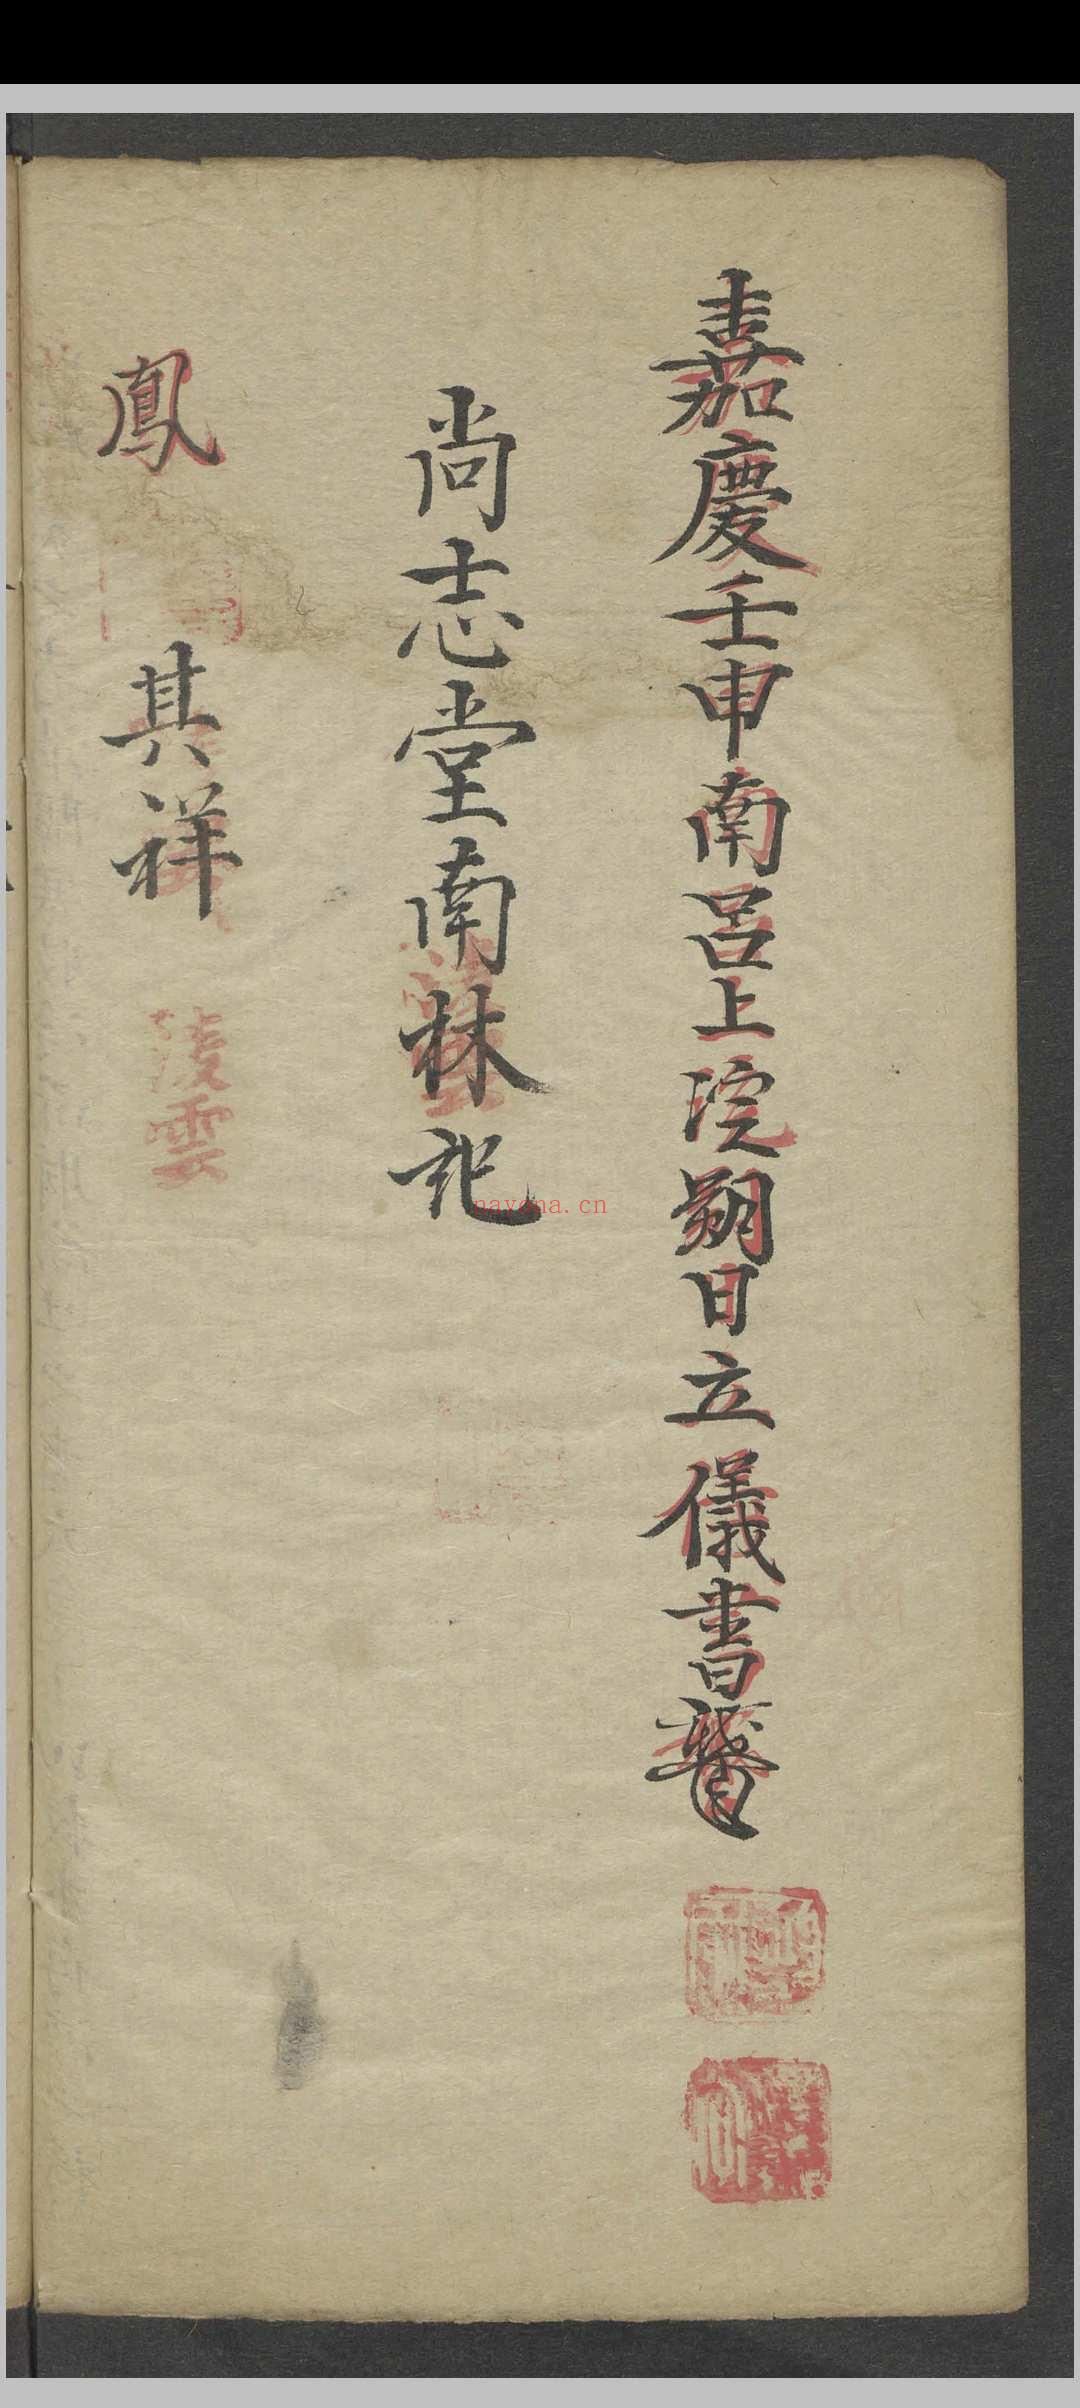 嘉慶壬申南呂上浣朔日立儀書
尚志堂南林記
鳳 其祥 淩雲
nayona.cn